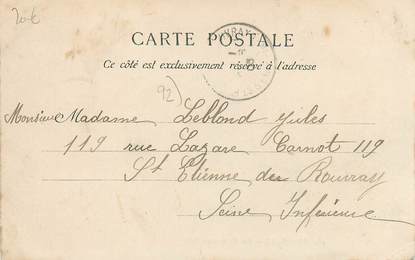 20€
CARTE POSTALE
Ce côté est exclusivement réservé à l'adresse
92)
Monsieur Madame Leblond Jules
119 rue Lazare Carnot 119
St Etienne du Rouvray
Seine Inférieure